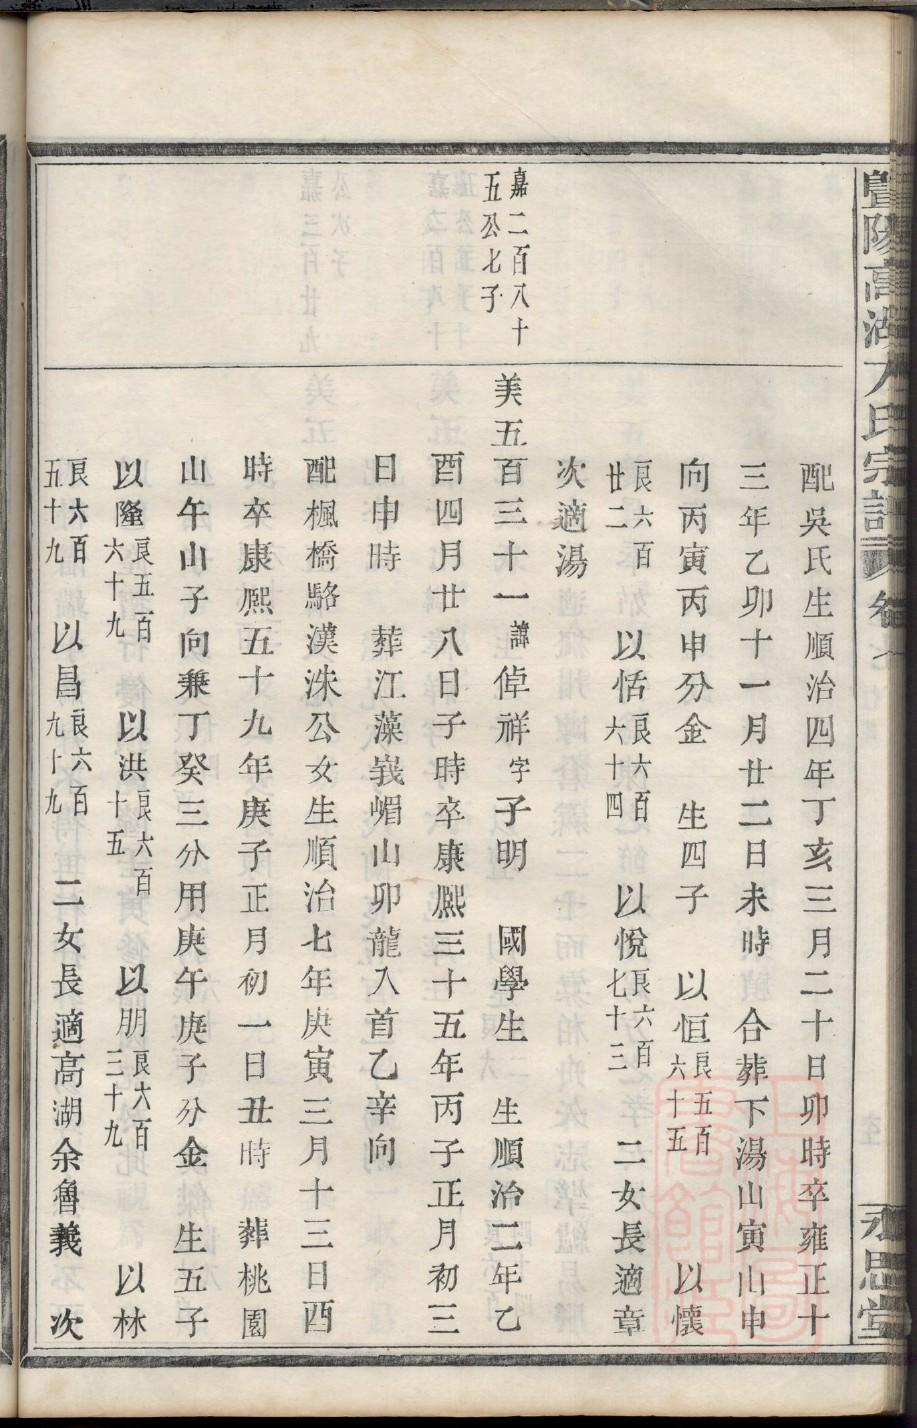 暨陽高湖方氏宗譜
永思堂
配吳氏生順治四年丁亥三月二十日卯時卒雍正十
三年乙卯十一月廿二日未時 合葬下湯山寅山申
向丙寅丙申分金 生四子 以恒良五百六十五 以懷
良六百廿二 以恬良六百六十四 以悅良六百七十三 二女長適章
次適湯
嘉二百八十
五公七子
美五百三十一諱倬祥字子明 國學生 生順治二年乙
酉四月廿八日子時卒康熙三十五年丙子正月初三
日申時 葬江藻峩嵋山卯龍入首乙辛向
配楓橋駱漢洙公女生順治七年庚寅三月十三日酉
時卒康熙五十九年庚子正月初一日丑時 葬桃園
山午山子向兼丁癸三分用庚午庚子分金 生五子
以隆良五百六十九 以洪良六百十五 以朋良六百三十九 以林
良六百五十九 以昌良六百九十九 二女長適高湖余魯義 次